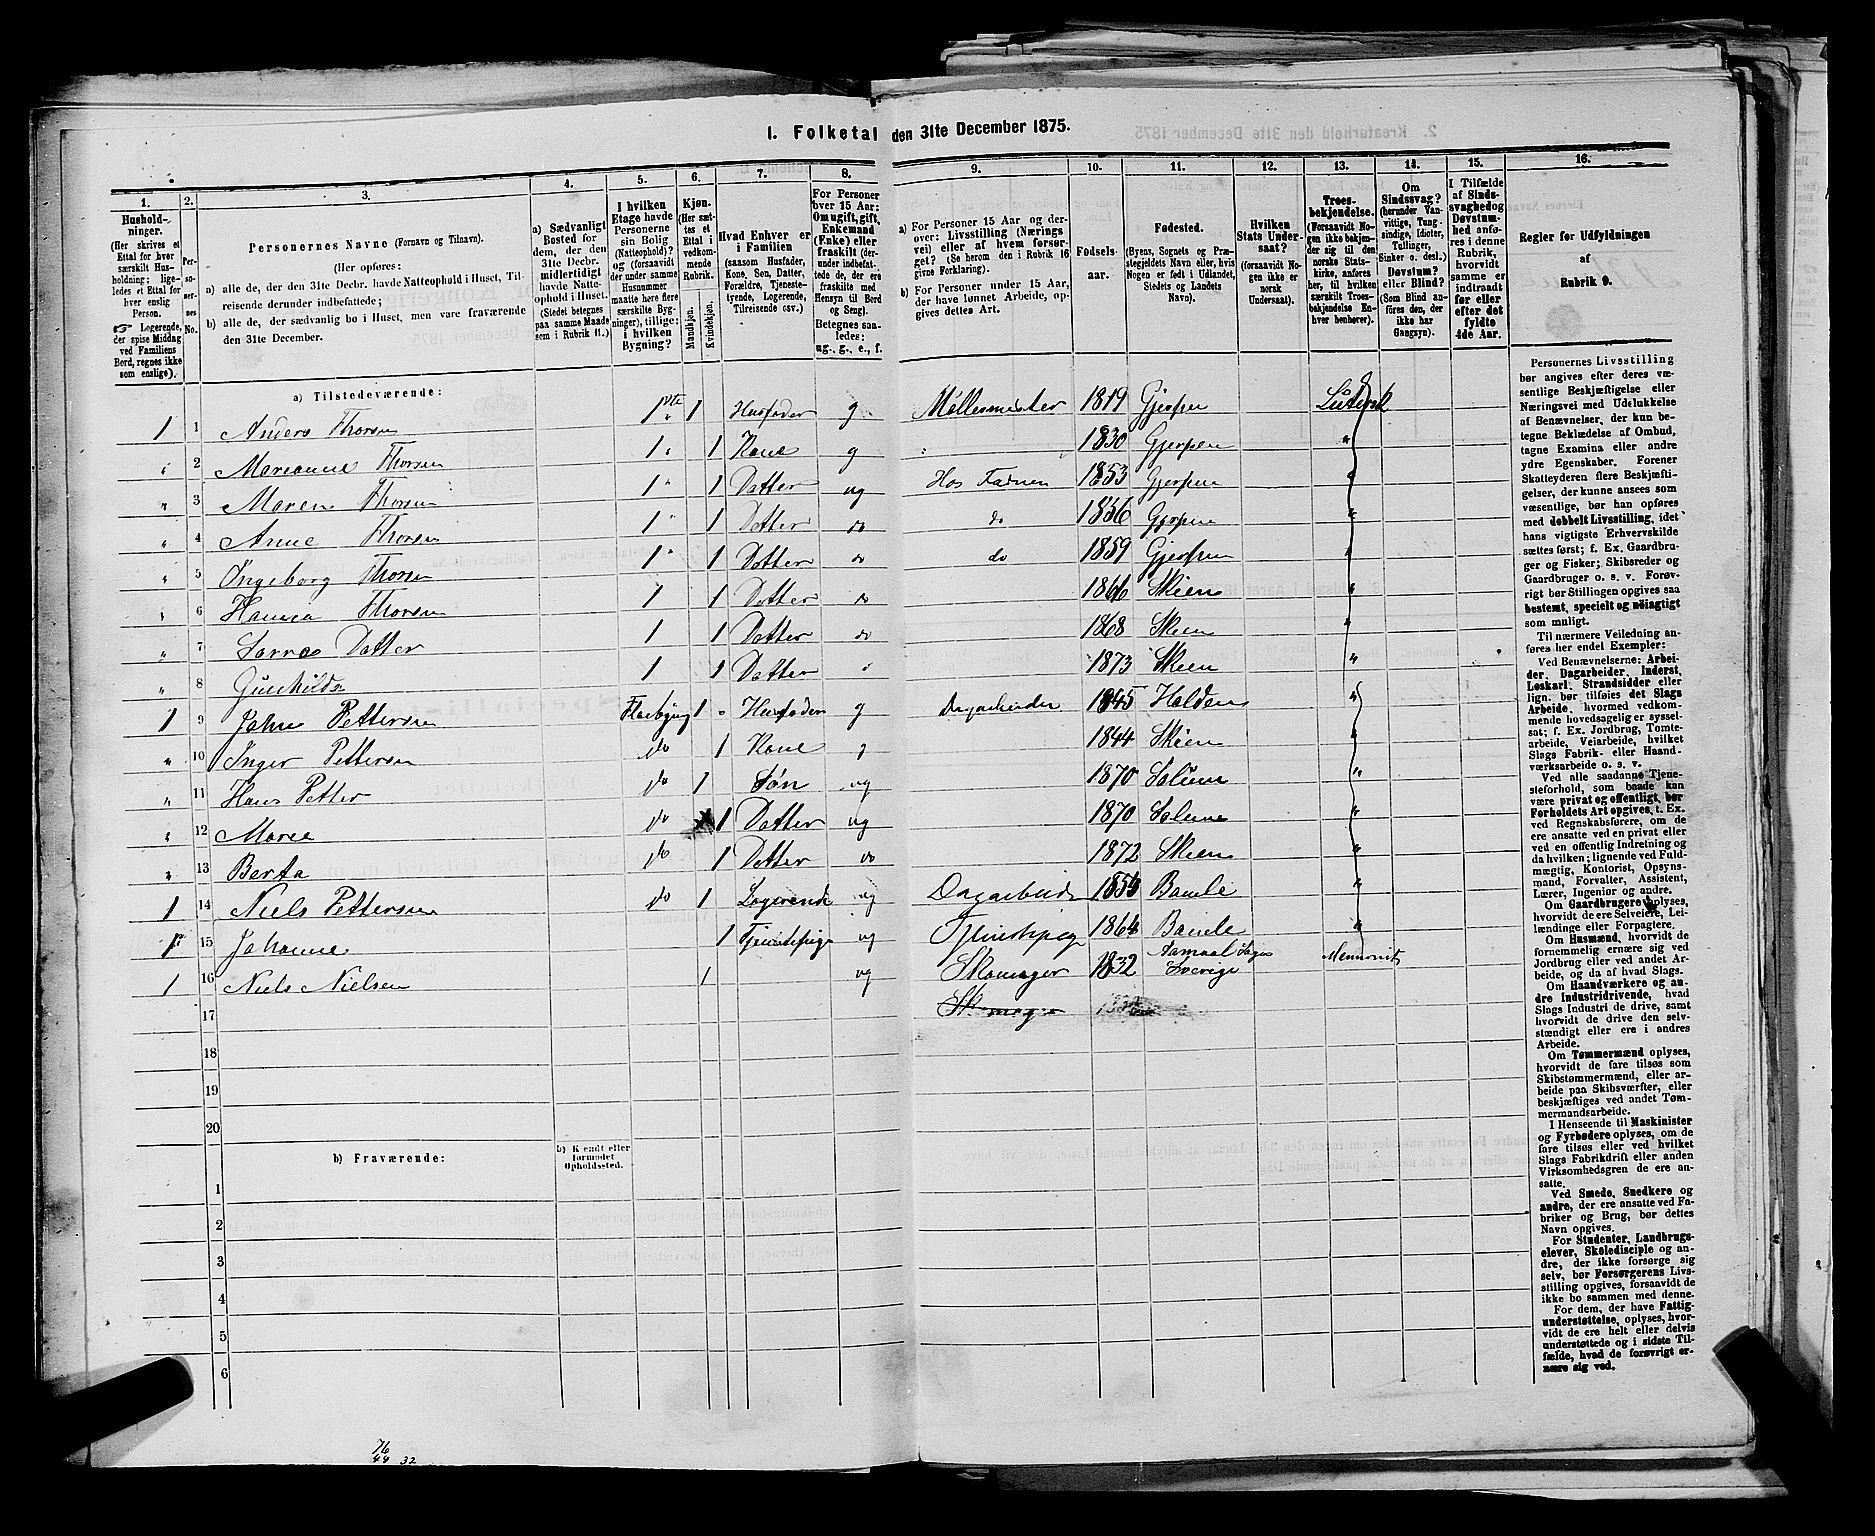 1. Folketal den 31te December 1875.
1. Husholdninger. (Her skrives et Ettal for hver særskilt Husholdning; ligeledes et Ettal for hver enslig Person. ☞ Logerende, der spise Middag ved Familiens Bord, regnes ikke som enslige).
2. Personernes No.
3. Personernes Navne (Fornavn og Tilnavn).
(Her opføres:
a) alle de, der den 31te Decbr. havde Natteophold i Huset, Tilreisende derunder indbefattede;
b) alle de, der sædvanlig bo i Huset, men vare fraværende den 31te December.
4. a) Sædvanligt Bosted for dem, der den 31te Decbr. midlertidigt havde Natteophold i Huset. (Stedet betegnes paa samme Maade som i Rubrik 11.)
5. I hvilken Etage havde Personerne sin Bolig (Natteophold)? og (forsaavidt der under samme Husnummer maatte høre flere særskilte Bygninger), tillige: i hvilken Bygning?
6. Kjøn. (Her sættes et Ettal i vedkommende Rubrik. Mandkjøn. Kvindekjøn.
7. Hvad Enhver er i Familien (saasom Husfader, Kone, Søn, Datter, Forældre, Tjenestetyende, Logerende, Tilreisende osv.)
8. For Personer over 15 Aar: Om ugift, gift, Enkemand (Enke) eller fraskilt (derunder indbefattede, de, der ere fraskilte med Hensyn til Bord og Seng). Betegnes saaledes: ug., g., e., f.
9. a) For Personer 15 Aar og derover: Livsstilling (Næringsvei) eller af hvem forsørget? (Se herom den i Rubrik 16 givne Forklaring).
b) For Personer under 15 Aar, der have lønnet Arbeide, opgives dettes Art.
10. Fødselsaar.
11. Fødested. (Byens, Sognets og Præstegjeldets Navn eller, hvis Nogen er født i Udlandet, Stedets og Landets Navn).
12. Hvilken Stats Undersaat? (forsaavidt Nogen ikke er norsk Undersaat).
13. Troesbekjendelse. (Forsaavidt Nogen ikke bekjender sig til den norske Statskirke, anføres her, til hvilken særskilt Troesbekjendelse Enhver henhører).
14. Om Sindssvag? (herunder Vanvittige, Tungsindige, Idioter, Tullinger, Sinker o. desl.) Døvstum? eller Blind? (Som Blind anføres den, der ikke har Gangsyn).
15. I Tilfælde af Sindssvaghed og Døvstumhed anføres i denne Rubrik, hvorvidt samme er indtraadt før eller efter det fyldte 4de Aar.
16. Regler for Udfyldningen af Rubrik 9.
a) Tilstedeværende:
1 1 Anders Thorsen 1 1 Husfader g Møllermester 1819 Gjerpen Luthersk
" 2 Marianne Thorsen 1 " 1 Kone g 1830 Gjerpen "
" 3 Maren Thorsen 1 " 1 Datter ug Hos Faderen 1853 Gjerpen "
" 4 Anne Thorsen 1 " 1 Datter do do 1856 Gjerpen "
" 5 Ingeborg Thorsen 1 " 1 Datter do do 1859 Gjerpen "
" 6 Hanna Thorsen 1 1 Datter do 1866 Skien "
" 7 Datter 1 1 Datter do 1868 Skien "
" 8 Gunhilda 1 1 Datter 1873 Skien "
1 9 Johns Pettersen 1 " Husfader g Dagarbeider 1845 Halden "
" 10 Inger Pettersen do 1 Kone g 1844 Skien "
" 11 Hans Petter do 1 Søn ug 1870 Solum "
" 12 Maren do 1 Datter ug 1870 Solum "
" 13 Berta do 1 Datter do 1872 Skien "
1 14 Niels Pettersen do 1 Logerende ug Dagarbeid Bamle "
15 Johanne 1 Tjenstepige ug Tjenstepige 1864 Bamle "
1 16 Niels Nielsen 1 ug Skomager 1832 Aamaal Sogn Sverige
17 Skomager
18
19
20
b) Fraværende:
b) Kendt eller formodet Opholdssted.
1
2
3
4
5
6
Personernes Livsstilling
bør angives efter deres væ-
sentlige Beskjæftigelse eller
Næringsvei med Udelukkelse
af Benævnelser, der kun be-
tegne Beklædelse af Ombud,
tagne Examina eller andre
ydre Egenskaber. Forener
Skatteyderen flere Beskjæfti-
gelser, der kunne ansees som
væsentlige, bør han opføres
med dobbelt Livsstilling, idet
hans vigtigste Erhvervskilde
sættes først; f. Ex. Gaardbru-
ger og Fisker; Skibsreder og
Gaardbruger o. s. v. Forøv-
rigt bør Stillingen opgives saa
bestemt, specielt og nøiagtigt
som muligt.
Til nærmere Veiledning an-
føres her endel Exempler:
Ved Benævnelserne: Arbei-
der, Dagarbeider, Inderst,
Løskarl, Strandsidder eller
lign. bør tilføies det Slags
Arbeide, hvormed vedkom-
mende hovedsagelig er syssel-
sat; f. Ex. Jordbrug, Tømte-
arbeide, Veiarbeide, hvilket
Slags Fabrik- eller Haand-
værksarbeide o. s. v.
Ved alle saadanne Tjene-
steforhold, som baade kan
være privat og offentligt, bør
Forholdets Art opgives, t. Ex.
ved Regnskabsførere, om de
ere ansatte ved en privat eller
ved en offentlig Indretning og
da hvilken; lignende ved Fuld-
mægtig, Kontorist, Opsyns-
mand, Forvalter, Assistent,
Lærer, Ingeniør og andre.
Om Gaardbrugere oplyses,
hvorvidt de ere Selveiere, Lei-
lændinge eller Forpagtere.
Om Husmænd, hvorvidt de
fornemmelig ernære sig ved
Jordbrug eller ved andet Ar-
beide, og da af hvad Slags.
Om Haandværkere og an-
dre Industridrivende, hvad
Slags Industri de drive, samt
hvorvidt de drive den selv-
stændigt eller ere i andres
Arbeide.
Om Tømmermænd oplyses,
hvorvidt de fare tilsøs som
Skibstømmermænd, eller ar-
beide paa Skibsværfter, eller
beskjæftiges ved andet Tøm-
mermandsarbeide.
I Henseende til Maskinister
og Fyrbødere oplyses, om de
fare tilsøs eller ved hvilket
Slags Fabrikdrift eller anden
Virksomhedsgren de ere an-
satte.
Ved Smede, Snedkere og
andre, der ere ansatte ved Fa-
briker og Brug, bør dettes
Navn opgives.
For Studenter, Landbrugs-
elever, Skoledisciple og an-
dre, der ikke forsørge sig
selv, bør Forsørgerens Livs-
stilling opgives, forsaavidt de
ikke bo sammen med denne.
For dem, der have Fattig-
understøttelse, oplyses, hvor-
vidt de ere helt eller delvis
understøttede og i sidste Til-
fælde, hvad de forøvrigt er-
nære sig ved.
76
44 32